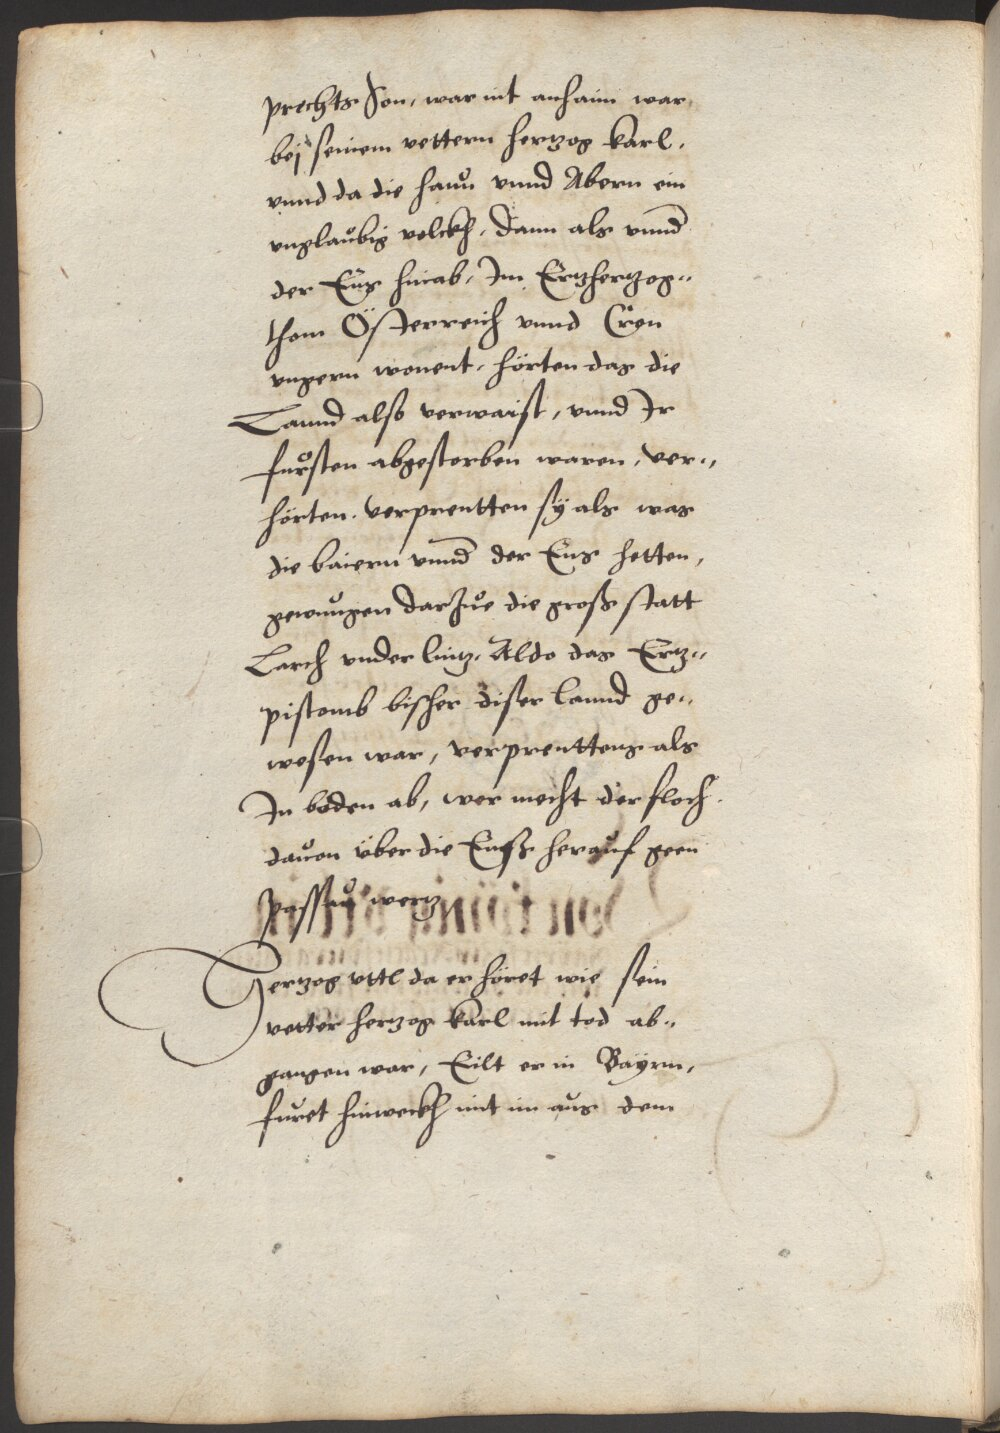 prechts Son, war nit anhaim war
bej seinem vettern hertzog karl,
vnnd da die haún vnnd Abern ein
vnglaúbig volckh, dann als vnnd
der Enns hinab, Im Ertzhertzog„
thom Österreich vnnd Cron
vngern wonent, hörten das die
Lannd also verwaist, vnnd Ir
fürsten abgestorben waren, ver„
hörten. verprentten sÿ als was
die baiern vnnd der Enns hetten,
gewúngen darzúe die groß statt
Larch vnder lintz, Aldo das Ertz„
pistomb bischer diser lannd ge„
wesen war, verprenttens als
In boden ab, wer mecht der floch
dauon über die Ennß herauf geen
passaú wertz
Hertzog vttl da er höret wie sein
vetter hertzog karl mit tod ab„
gangen war, Eilt er in Bayrn,
füret hinweckh mit im aús dem